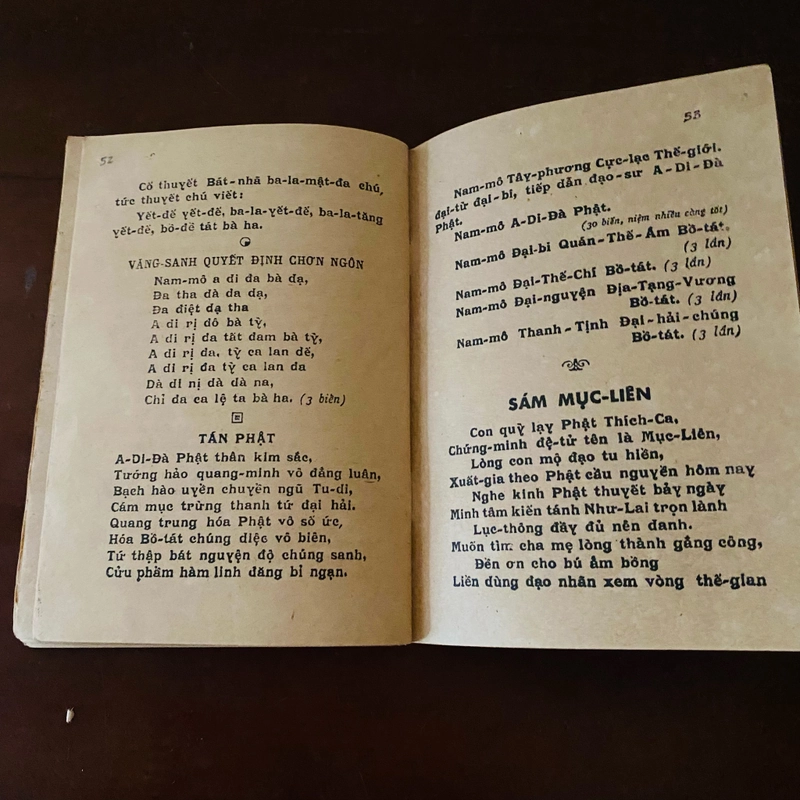 52
Cố thuyết Bát-nhã ba-la-mật-đa chú,
tức thuyết chú viết:
Yết-đế yết-đế, ba-la-yết-đế, ba-la-tăng
yết-đế, bồ-đề tát bà ha.
VÃNG-SANH QUYẾT ĐỊNH CHƠN NGÔN
Nam-mô a di đa bà dạ,
Đa tha dà đa dạ,
Đa điệt dạ tha
A di rị đô bà tỳ,
A di rị đa tất đam bà tỳ,
A di rị đa, tỳ ca lan đế,
A di rị đa tỳ ca lan đa
Dà di nị dà dà na,
Chỉ đa ca lệ ta bà ha. (3 biến)
TÁN PHẬT
A-Di-Đà Phật thân kim sắc,
Tướng hảo quang-minh vô đẳng luân,
Bạch hào uyển chuyển ngũ Tu-di,
Cám mục trừng thanh tứ đại hải.
Quang trung hóa Phật vô số ức,
Hóa Bồ-tát chúng diệc vô biên,
Tứ thập bát nguyện độ chúng sanh,
Cửu phẩm hàm linh đăng bỉ ngạn.
53
Nam-mô Tây-phương Cực-lạc Thế-giới.
đại-từ đại-bi, tiếp dẫn đạo-sư A-Di-Đà
Phật.
Nam-mô A-Di-Đà Phật.
(30 biến, niệm nhiều càng tốt)
Nam-mô Đại-bi Quán-Thế-Âm Bồ-tát.
(3 lần)
Nam-mô Đại-Thế-Chí Bồ-tát. (3 lần)
Nam-mô Đại-nguyện Địa-Tạng-Vương
Bồ-tát. (3 lần)
Nam-mô Thanh-Tịnh Đại-hải-chúng
Bồ-tát. (3 lần)
SÁM MỤC-LIÊN
Con quỳ lạy Phật Thích-Ca,
Chứng-minh đệ-tử tên là Mục-Liên,
Lòng con mộ đạo tu hiền,
Xuất-gia theo Phật cầu nguyện hôm nay
Nghe kinh Phật thuyết bảy ngày
Minh tâm kiến tánh Như-Lai trọn lành
Lục-thông đầy đủ nên danh.
Muốn tìm cha mẹ lòng thành gắng công,
Đền ơn cho bú ẵm bồng
Liền dùng đạo nhãn xem vòng thế-gian